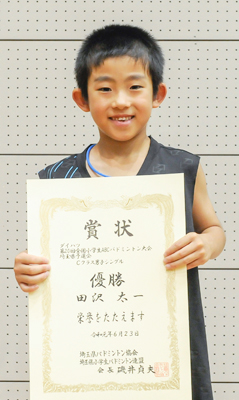 賞状
ダイハツ
第20回全国小学生ABCバドミントン大会
埼玉県予選会
Cクラス男子シングルス
優勝
田沢 太一
栄誉をたたえます
令和元年6月23日
埼玉県バドミントン協会
埼玉県小学生バドミントン連盟
会長 碇井貞夫